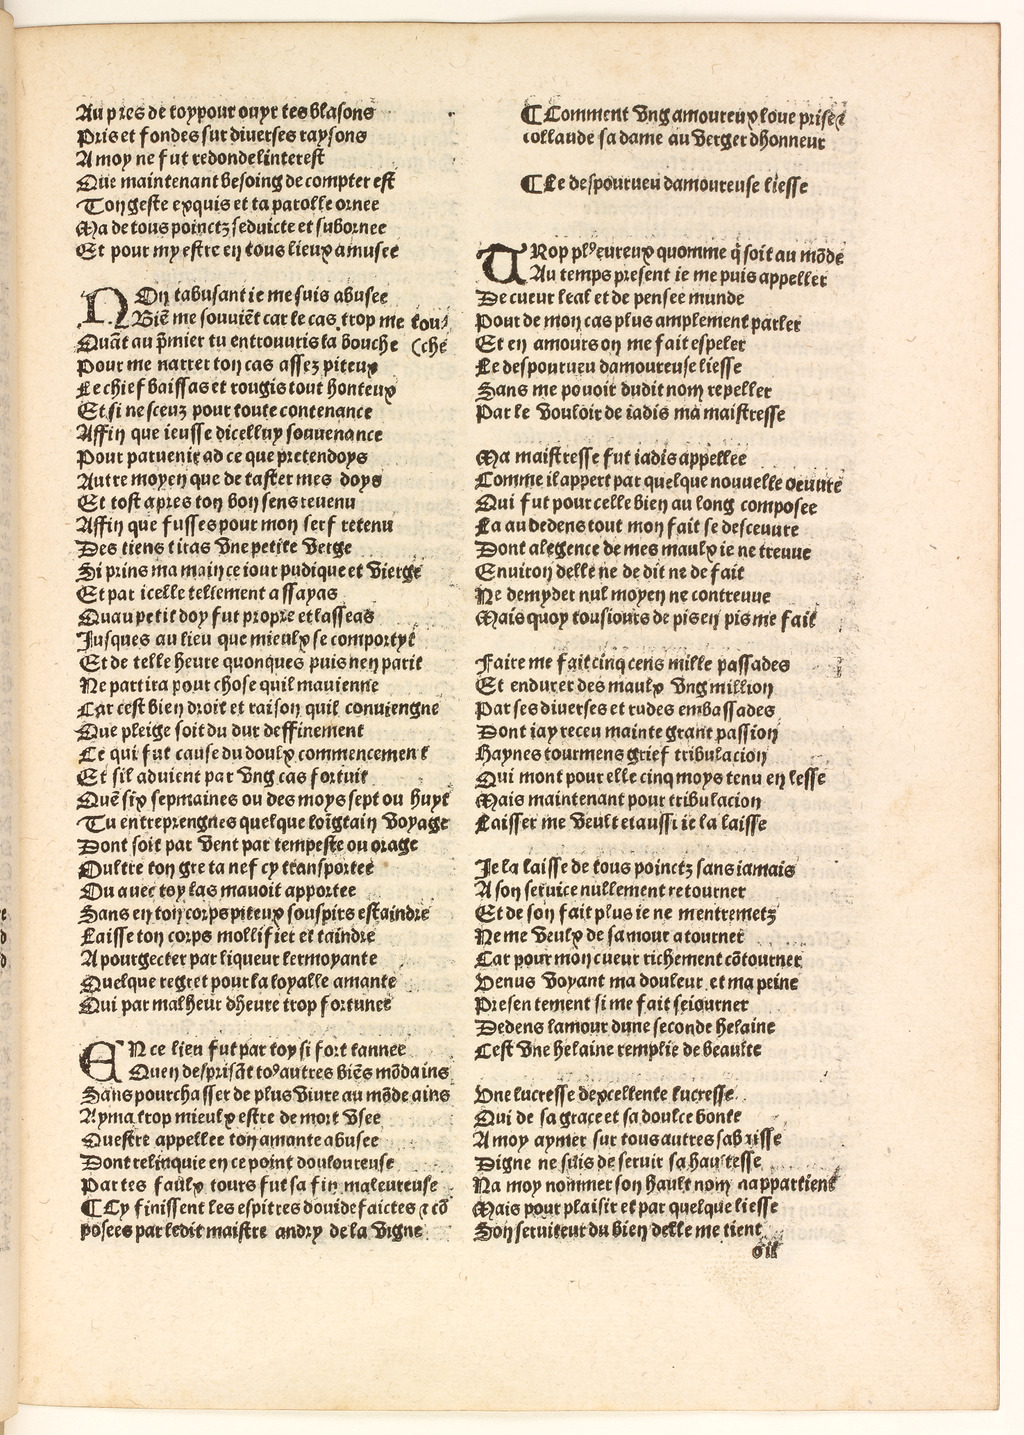 Au pres de toy pour ouyr tes blasons
Pris et fondes sur diuerses raysons
A moy ne fut redonde linterest
Que maintenant besoing de compter est
Ton geste exquis et ta parolle ornee
Ma de tous poinctz seduicte et subornee
Et pour my estre en tous lieux amusee
NOn tabusant ie me suis abusee
Biē me souuiēt car le cas trop me tou⸗
Quāt au p̄mier tu entrouuris ta bouche (che
Pour me narrer ton cas assez piteux
Le chief baissas et rougis tout honteux
Et si ne sceuz pour toute contenance
Affin que ieusse dicelluy souuenance
Pour paruenir ad ce que pretendoys
Autre moyen que de taster mes doys
Et tost apres ton bon sens reuenu
Affin que fusses pour mon serf retenu
Des tiens tiras vne petite verge
Si prins ma main ce iour pudique et vierge
Et par icelle tellement assayas
Quau petit doy fut propre et lasseas
Jusques au lieu que mieulx se comportyt
Et de telle heure quonques puis nen partit
Ne partira pour chose quil mauienne
Car cest bien droit et raison quil conuiengne
Que pleige soit du dur deffinement
Ce qui fut cause du doulx commencement
Et sil aduient par vng cas fortuit
Quē six sepmaines ou des moys sept ou huyt
Tu entreprengnes quelque loīgtain voyage
Dont soit par vent par tempeste ou orage
Oultre ton gre ta nef cy transportee
Ou auec toy las mauoit apportee
Sans en ton corps piteux souspirs estaindre
Laisse ton corps mollifier et taindre
A pourgecter par liqueur lermoyante
Quelque regret pour la loyalle amante
Qui par malheur dheure trop fortunee
EN ce lieu fut par toy si fort tannee
Quen desprisāt to⁹ autres biēs mōdains
Sans pourchasser de plus viure au mōde ains
Ayma trop mieulx estre de mort vsee
Questre appellee ton amante abusee
Dont relinquie en ce point douloureuse
Par tes faulx tours fut sa fin maleureuse
¶ Cy finissent les espitres douide faictes ⁊ cō
posees par ledit maistre andry de la vigne
¶ Comment vng amoureux loue prise ⁊
collaude sa dame au verger dhonneur
¶ Le despourueu damoureuse liesse
TRop pl⁹ eureux quomme q̄ soit au mōde
Au temps present ie me puis appeller
De cueur leal et de pensee munde
Pour de mon cas plus amplement parler
Et en amours on me fait espeler
Le despourueu damoureuse liesse
Sans me pouoir dudit nom repeller
Par le vouloir de iadis ma maistresse
Ma maistresse fut iadis appellee
Comme il appert par quelque nouuelle oeuure
Qui fut pour celle bien au long composee
La au dedens tout mon fait se desceuure
Dont alegence de mes maulx ie ne treuue
Enuiron delle ne de dit ne de fait
Ne demyder nul moyen ne contreuue
Mais quoy tousiours de pis en pis me fait
Faire me fait cinq cens mille passades
Et endurer des maulx vng million
Par ses diuerses et rudes embassades
Dont iay receu mainte grant passion
Haynes tourmens grief tribulacion
Qui mont pour elle cinq moys tenu en lesse
Mais maintenant pour tribulacion
Laisser me veult et aussi ie la laisse
Je la laisse de tous poinctz sans iamais
A son seruice nullement retourner
Et de son fait plus ie ne mentremetz
Ne me veulx de samour atourner
Car pour mon cueur richement cōtourner
Venus voyant ma douleur et ma peine
Presentement si me fait seiourner
Dedens lamour dune seconde helaine
Cest vne helaine remplie de beaulte
Vne lucresse dexcellente lucresse
Qui de sa grace et sa doulce bonte
A moy aymer sur tous autres sabrisse
Digne ne suis de seruir sa haultesse
Na moy nommer son hault nom nappartient
Mais pour plaisir et par quelque liesse
Son seruiteur du bien delle me tient
oii